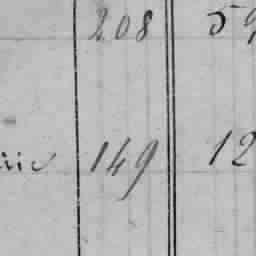 208 59
149 12